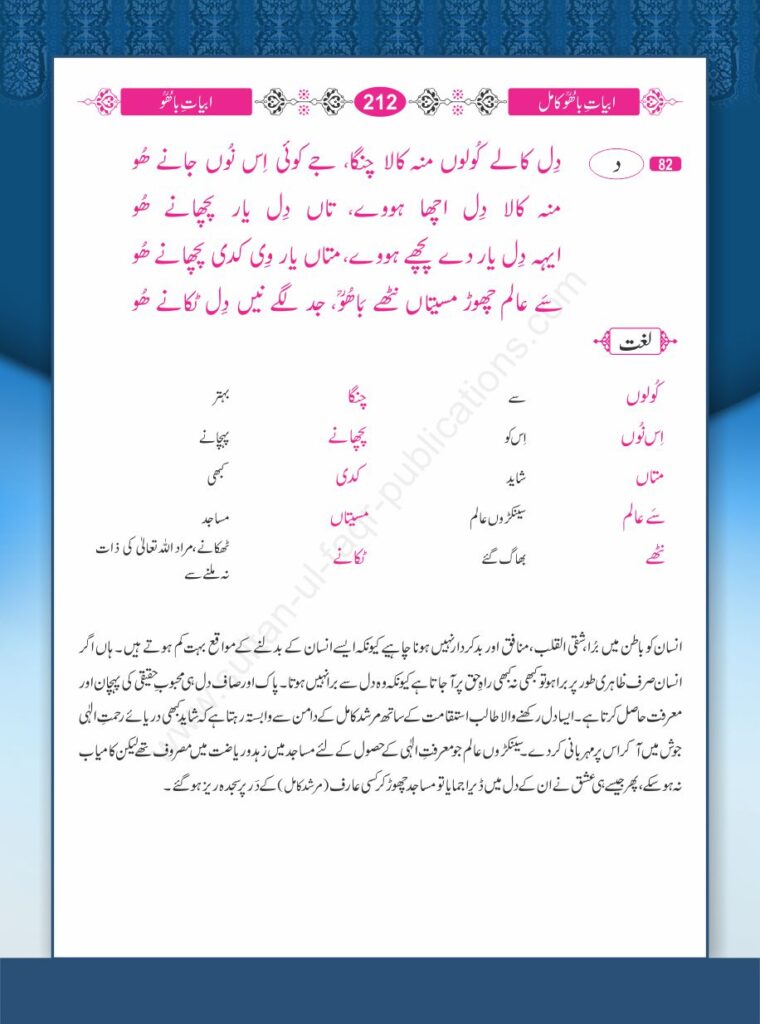 ابیاتِ باھُوؒ کامل 212 ابیاتِ باھُوؒ
82 د
دِل کالے کُولوں منہ کالا چنگا، جے کوئی اِس نُوں جانے ھُو
منہ کالا دِل اچھا ہووے، تاں دِل یار پچھانے ھُو
ایہہ دِل یار دے پچھے ہووے، متاں یار وِی کدی پچھانے ھُو
سَے عالم چھوڑ مسیتاں نٹھے بَاھُوؒ، جد لگے نیں دِل ٹکانے ھُو
لغت
کُولوں سے چنگا بہتر
اِس نُوں اِس کو پچھانے پہچانے
متاں شاید کدی کبھی
سَے عالم سینکڑوں عالم مسیتاں مساجد
نٹھے بھاگ گئے ٹکانے ٹھکانے، مراد اللہ تعالیٰ کی ذات
نہ ملنے سے
انسان کو باطن میں بُرا، شقی القلب، منافق اور بدکردار نہیں ہونا چاہیے کیونکہ ایسے انسان کے بدلنے کے مواقع بہت کم ہوتے ہیں۔ ہاں اگر
انسان صرف ظاہری طور پر برا ہو تو کبھی نہ کبھی راہِ حق پر آ جاتا ہے کیونکہ وہ دل سے برا نہیں ہوتا۔ پاک اور صاف دل ہی محبوبِ حقیقی کی پہچان اور
معرفت حاصل کرتا ہے۔ ایسا دل رکھنے والا طالب استقامت کے ساتھ مرشد کامل کے دامن سے وابستہ رہتا ہے کہ شاید کبھی دریائے رحمتِ الٰہی
جوش میں آ کر اس پر مہربانی کر دے۔ سینکڑوں عالم جو معرفتِ الٰہی کے حصول کے لئے مساجد میں زہد و ریاضت میں مصروف تھے لیکن کامیاب
نہ ہو سکے، پھر جیسے ہی عشق نے ان کے دل میں ڈیرا جمایا تو مساجد چھوڑ کر کسی عارف (مرشد کامل) کے دَر پر سجدہ ریز ہو گئے۔
www.sultan-ul-faqr-publications.com